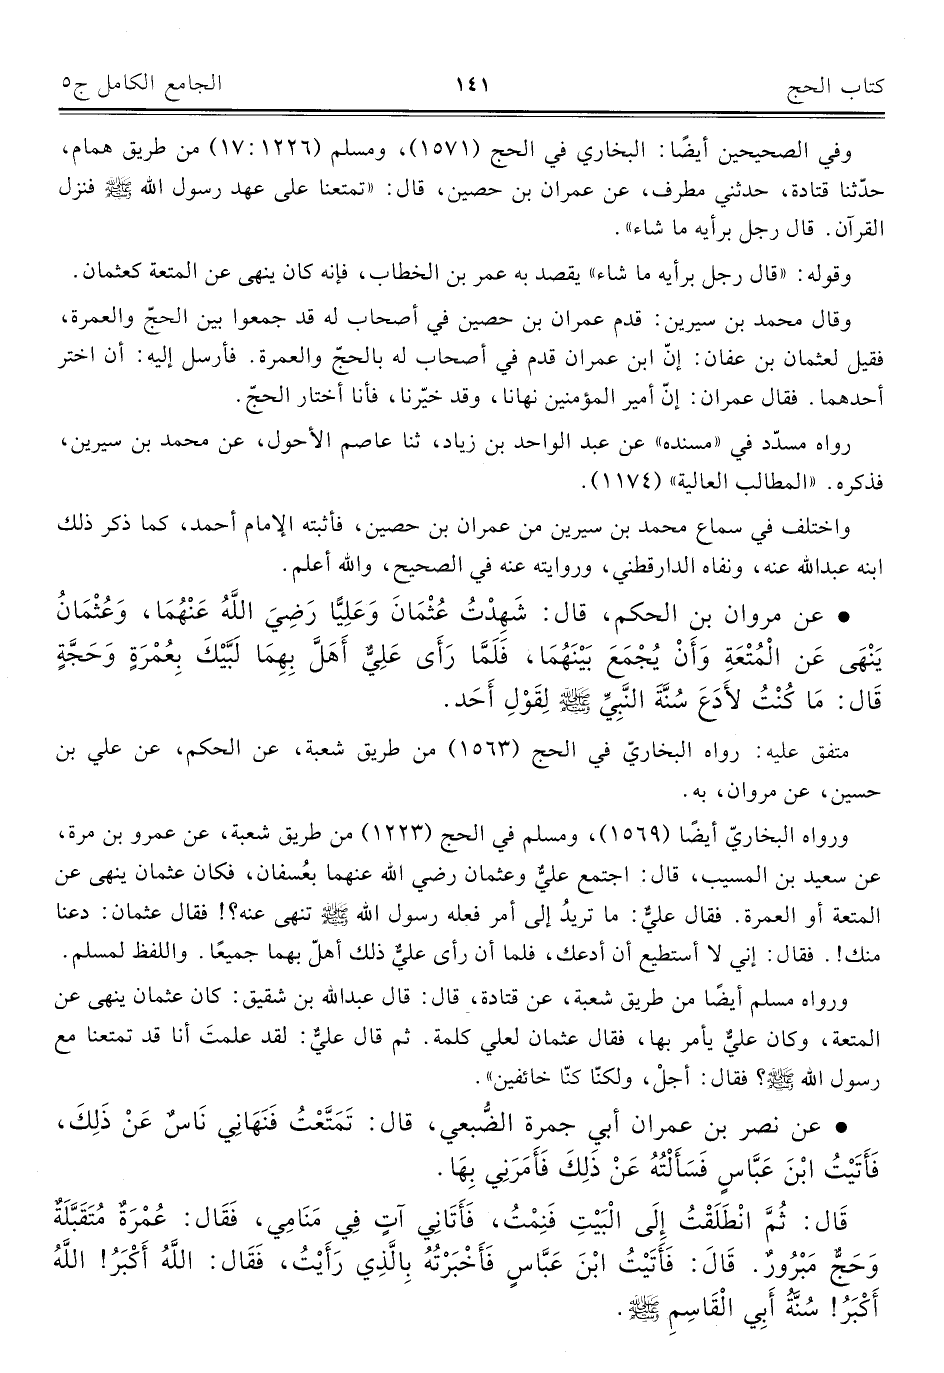 كتاب الحج ١٤١ الجامع الكامل ج٥
وفي الصحيحين أيضًا: البخاري في الحج (١٥٧١)، ومسلم (١٢٢٦: ١٧) من طريق همام،
حدّثنا قتادة، حدثني مطرف، عن عمران بن حصين، قال: «تمتعنا على عهد رسول الله ﷺ فنزل
القرآن. قال رجل برأيه ما شاء».
وقوله: «قال رجل برأيه ما شاء» يقصد به عمر بن الخطاب، فإنه كان ينهى عن المتعة كعثمان.
وقال محمد بن سيرين: قدم عمران بن حصين في أصحاب له قد جمعوا بين الحجّ والعمرة،
فقيل لعثمان بن عفان: إنّ ابن عمران قدم في أصحاب له بالحجّ والعمرة. فأرسل إليه: أن اختر
أحدهما. فقال عمران: إنّ أمير المؤمنين نهانا، وقد خيّرنا، فأنا أختار الحجّ.
رواه مسدّد في «مسنده» عن عبد الواحد بن زياد، ثنا عاصم الأحول، عن محمد بن سيرين،
فذكره. «المطالب العالية» (١١٧٤).
واختلف في سماع محمد بن سيرين من عمران بن حصين، فأثبته الإمام أحمد، كما ذكر ذلك
ابنه عبدالله عنه، ونفاه الدارقطني، وروايته عنه في الصحيح، والله أعلم.
• عن مروان بن الحكم، قال: شَهِدْتُ عُثْمَانَ وَعَلِيًّا رَضِيَ اللَّهُ عَنْهُمَا، وَعُثْمَانُ
يَنْهَى عَنِ الْمُتْعَةِ وَأَنْ يُجْمَعَ بَيْنَهُمَا، فَلَمَّا رَأَى عَلِيٌّ أَهَلَّ بِهِمَا لَبَّيْكَ بِعُمْرَةٍ وَحَجَّةٍ
قَالَ: مَا كُنْتُ لأَدَعَ سُنَّةَ النَّبِيِّ ﷺ لِقَوْلِ أَحَد.
متفق عليه: رواه البخاريّ في الحج (١٥٦٣) من طريق شعبة، عن الحكم، عن علي بن
حسين، عن مروان، به.
ورواه البخاريّ أيضًا (١٥٦٩)، ومسلم في الحج (١٢٢٣) من طريق شعبة، عن عمرو بن مرة،
عن سعيد بن المسيب، قال: اجتمع عليٌّ وعثمان رضي الله عنهما بعُسفان، فكان عثمان ينهى عن
المتعة أو العمرة. فقال عليٌّ: ما تريدُ إلى أمر فعله رسول الله ﷺ تنهى عنه؟! فقال عثمان: دعنا
منك!. فقال: إني لا أستطيع أن أدعك، فلما أن رأى عليٌّ ذلك أهلّ بهما جميعًا. واللفظ لمسلم.
ورواه مسلم أيضًا من طريق شعبة، عن قتادة، قال: قال عبدالله بن شقيق: كان عثمان ينهى عن
المتعة، وكان عليٌّ يأمر بها، فقال عثمان لعلي كلمة. ثم قال عليٌّ: لقد علمتَ أنا قد تمتعنا مع
رسول الله ﷺ؟ فقال: أجلْ، ولكنّا كنّا خائفين».
• عن نصر بن عمران أبي جمرة الضُّبعي، قال: تَمَتَّعْتُ فَنَهَانِي نَاسٌ عَنْ ذَلِكَ،
فَأَتَيْتُ ابْنَ عَبَّاسٍ فَسَأَلْتُهُ عَنْ ذَلِكَ فَأَمَرَنِي بِهَا.
قَال: ثُمَّ انْطَلَقْتُ إِلَى الْبَيْتِ فَنِمْتُ، فَأَتَانِي آتٍ فِي مَنَامِي، فَقَال: عُمْرَةٌ مُتَقَبَّلَةٌ
وَحَجٌّ مَبْرُورٌ. قَالَ: فَأَتَيْتُ ابْنَ عَبَّاسٍ فَأَخْبَرْتُهُ بِالَّذِي رَأَيْتُ، فَقَال: اللَّهُ أَكْبَرُ! اللَّهُ
أَكْبَرُ! سُنَّةُ أَبِي الْقَاسِمِ ﷺ.